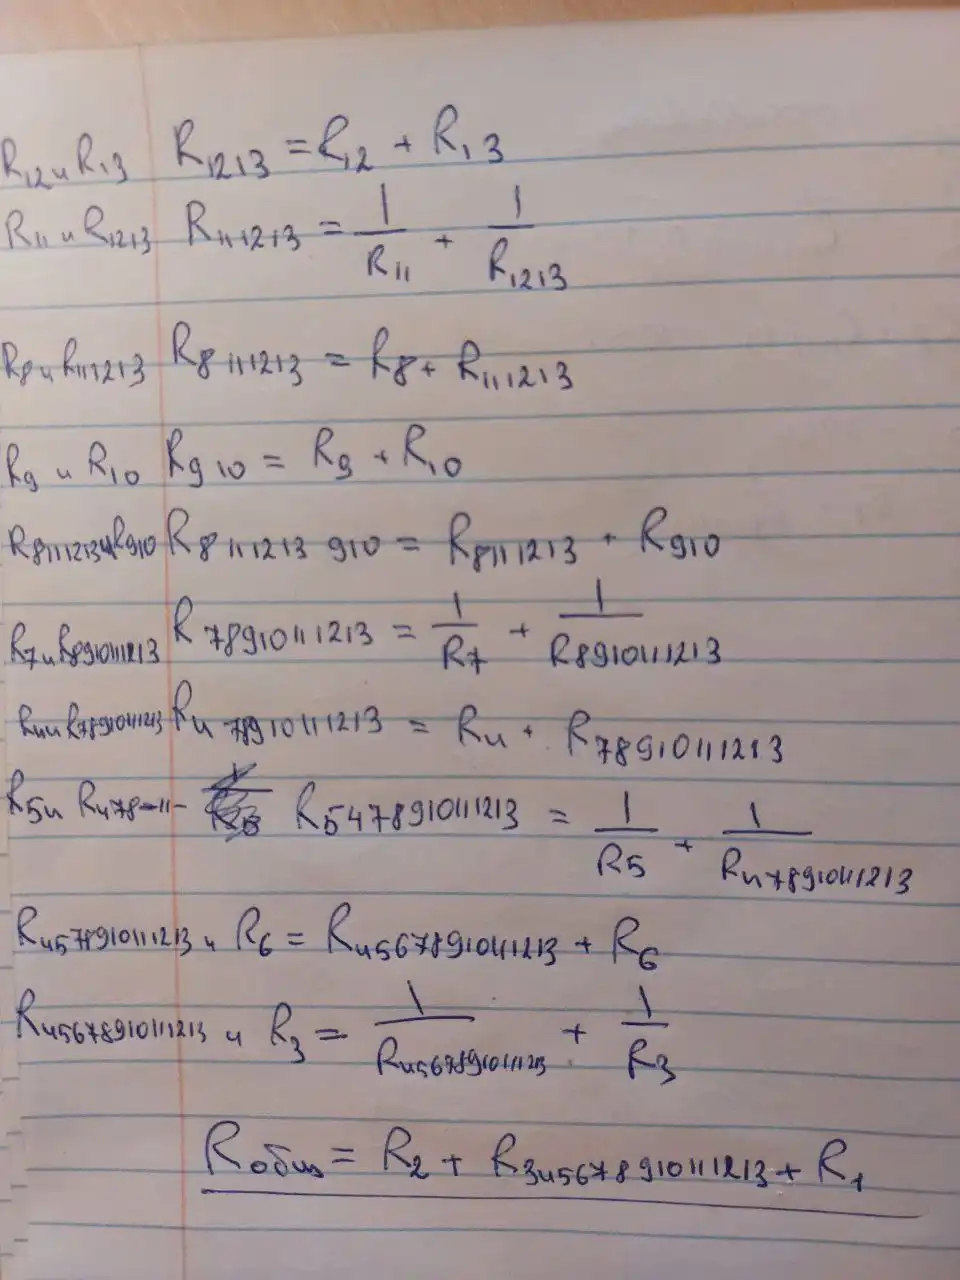 R12 и R13 R1213 = R12 + R13
R11 и R1213 R111213 = 1/R11 + 1/R1213
R8 и R111213 R8111213 = R8 + R111213
R9 и R10 R910 = R9 + R10
R8111213 и R910 R8111213910 = R8111213 + R910
R7 и R8910111213 R78910111213 = 1/R7 + 1/R8910111213
R4 и R78910111213 R478910111213 = R4 + R78910111213
R5 и R478-11- R5478910111213 = 1/R5 + 1/R478910111213
R4578910111213 и R6 = R45678910111213 + R6
R45678910111213 и R3 = 1/R45678910111213 + 1/R3
Rобщ = R2 + R345678910111213 + R1